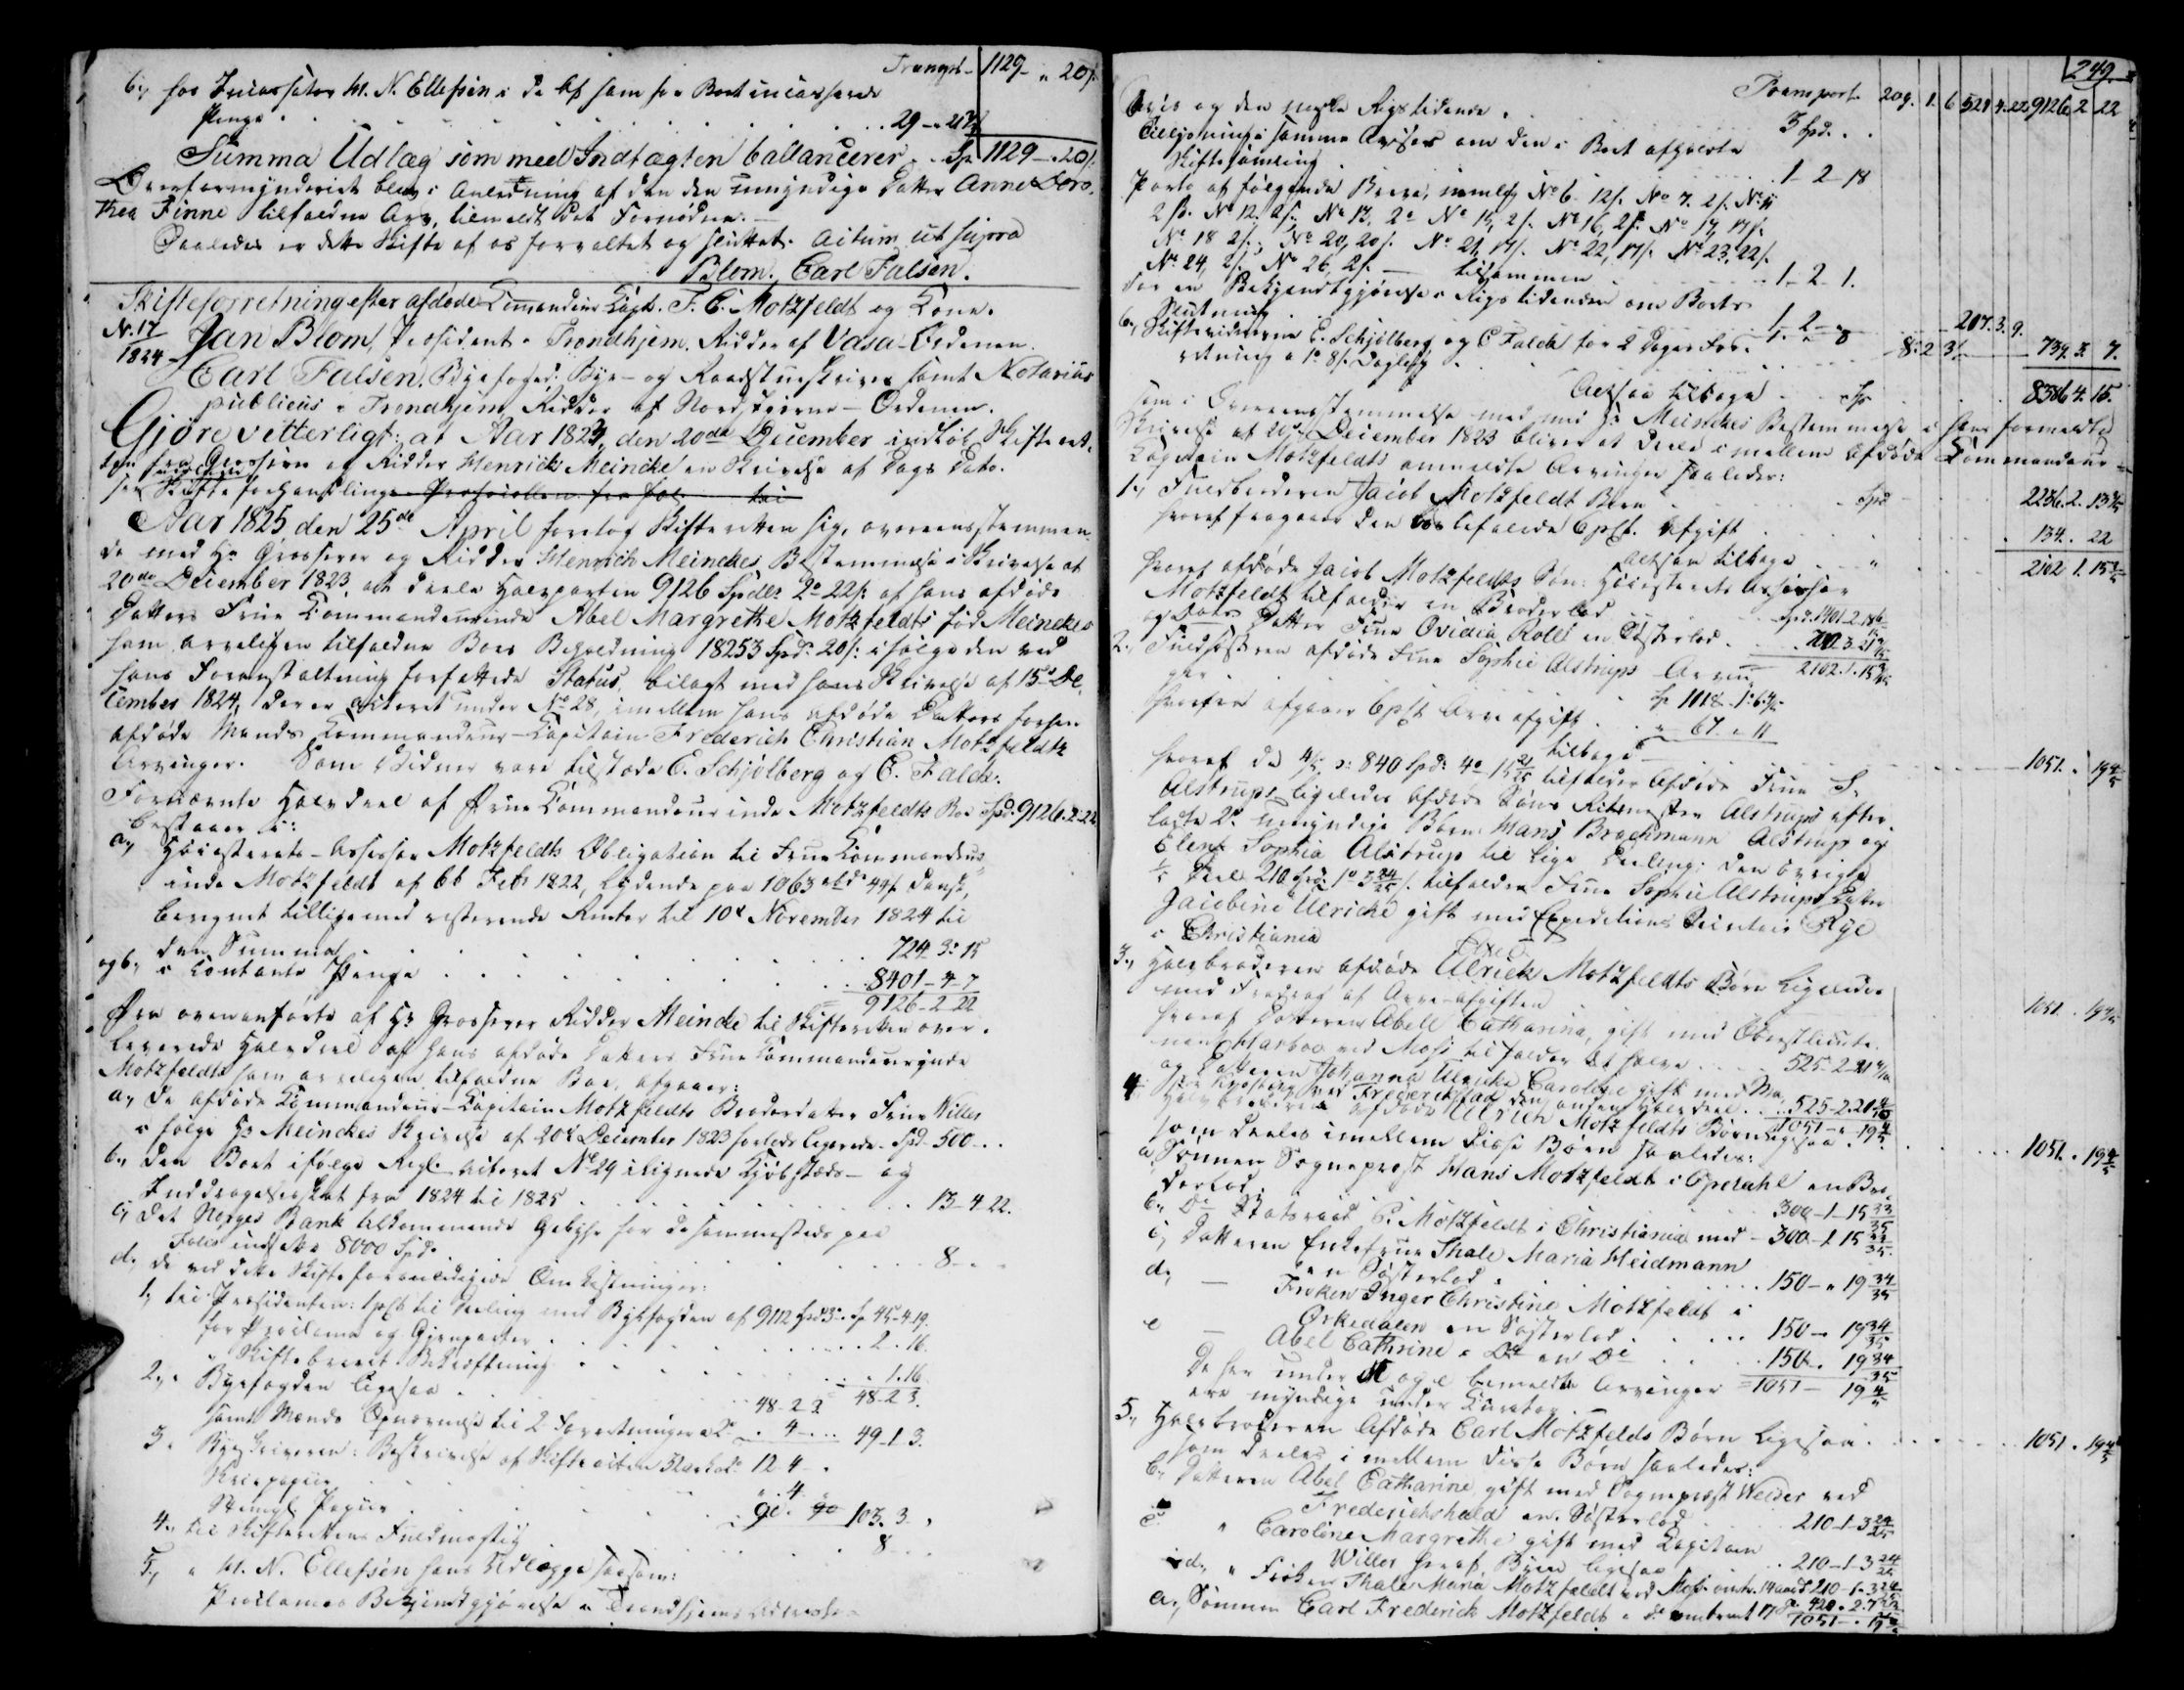 Transp. 1129 - " 20/.
6., for Incassator H. N. Ellefsen i de af ham for Boet incasserede
Penge . . . 29 - " 21 3/5
Summa Udlæg som med Indtægten ballancerer . . Sp. 1129 - " 20/.
Overformynderiet blev i Anledning af den den umyndige Datter Anne Doro-
thea Finne tilfaldne Arv, tilmeldt det Fornødne. -
Saaledes er dette Skifte af os forvaltet og sluttet. Actum ut supra
Blom. Carl Falsen.
Skifteforretning efter afdøde Commandeur Capt. F. C. Motzfeldt og Kone.
No. 17
1824
Jan Blom, Præsident i Trondhjem, Ridder af Vasa-Ordenen.
Carl Falsen, Byefoged, Bye- og Raadstueskriver samt Notarius
publicus i Trondhjem, Ridder af Nordstjerne-Ordenen.
Gjøre vitterligt: at Aar 1823, den 20de December indløb Skifteret-
ten fra Grosserer og Ridder Henrich Meincke en Skrivelse af Dags Dato.
see Skifteforhandlings-Protocollen fra fol. til
Aar 1825 den 25de April foretog Skifteretten sig, overeensstemmen-
de med Hr. Grosserer og Ridder Henrich Meinckes Bestemmelse i Skrivelse af
20de December 1823, at deele Halvparten 9126 Spdlr. 2 22/. af hans afdøde
Datters Frue Commandeurinde Abel Margrethe Motzfeldts født Meinckes
ham arveligen tilfaldne Boes Beholdning 18253 Spd. 20/. ifølge den ved
hans Foranstaltning forfattede Status, bilagt med hans Skrivelse af 15de De-
cember 1824, der er acteret under No. 28, imellem hans afdøde Datters forhen
afdøde Mands Commandeur-Capitain Frederich Christian Motzfeldts
Arvinger. Som Vidner vare tilstede E. Schjølberg og C. Falch.
Fornævnte Halvdeel af Frue Commandeurinde Motzfeldts Boe Spd. 9126.2.22
bestaaer i:
a., Høiesterets-Assessor Motzfeldts Obligation til Frue Commandeur-
inde Motzfeldt af 6t Febr. 1822, lydende paa 1063 rbd. 49/. dansk,
beregnet tilligemed resterende Renter til 10de November 1824 til
den Summa . . . 724 3. 15
og b., i Contante Penge . . . 8401 - 4 - 7
9126 - 2 - 22
Fra ovenanførte af Hr. Grosserer Ridder Meincke til Skifteretten over-
leverede Halvdeel af hans afdøde Datters Frue Commandeurinde
Motzfeldts ham arveligen tilfaldne Boe, afgaaer:
a., De afdøde Commandeur-Capitain Motzfeldts Broderdatter Frue Willer
i følge Hr. Meinckes Skrivelse af 20de December 1823 forlods legerede . Spd. 500 - . .
b., Den Boet ifølge Regl. acteret No. 29 ilignede Kjøbstæds- og
Inddragelsesskat fra 1824 til 1825 . . . 13 - 4 22.
c., Det Norges Bank tilkommende Gebyhr for de sammesteds paa
Folio indsatte 8000 Spd. . . . 8 - . .
d., de ved dette Skifte foranledigede Omkostninger:
1., til Præsidenten: 1 pCt. til Deeling med Byefogden af 9112 Spd. 3. Sp. 45 - 4 - 19.
for Proclama og Gjenparter . . . 2. 16.
" Skiftebrevets Bekræftning . . . 1. 16
2., " Byefogden ligesaa . . . 48 - 2 3. 48. 2 3.
samt Mænds Opnævnelse til 2 Forretninger . 4 - . . . 49. 1. 3.
3. Byeskriveren: Beskrivelse af Skifteacten 12 4 - .
Skrivpapiir . . . " . 4 "
Stemplt. Papiir . . . 90. 103. 3. "
4., til Skifterettens Fuldmægtig . . . 8 - . .
5., " H. N. Ellefsen hans Udlægge saasom:
Proclamas Bekjendtgjørelse i Trondhjems Adresse-
249.
Transport 209. 1. 6 521 4. 22 9126. 2. 22
Avis og den norske Rigstidende . . . 3 Spd. . .
Tillysning i samme Aviser om den i Boet afholdte
Skiftesamling . . . 1 - 2 - 18
Porto af følgende Breve, nemlig No. 6. 12/. No. 7. 2/. No. 11
2/. No. 12. 2/. No. 13. 2 No. 15, 2/. No. 16, 2/. No. 17, 17/.
No. 18 2/. No. 20, 20/. No. 21, 17/. No. 22, 17/. No. 23, 22/.
No. 24, 2/. No. 26, 2/. - tilsammen . . . 1 - 2 - 1.
For en Bekjendtgjørelse i Rigstidenden om Boets
Slutning . . . 1 - 2 - " 207. 3. 9.
6., Skiftevidnerne E. Schjølberg og C Falch for 2 Dages For-
retning a 8/. Daglig . . . 1. " 8 8. 2 3/. 739. 3. 7.
Altsaa tilbage . . . Sp. 8386 4. 15.
som i Overeensstemmelse med med Hr. Meinckes Bestemmelse i hans formeldte
Skrivelse af 20de December 1823 bliver at deele imellem Afdøde Commandeur-
Capitain Motzfeldts anmeldte Arvinger saaledes:
1., Fuldbroderen Jacob Motzfeldt Børn . . . Spd. 2236. 2. 13 3/5
hvoraf fragaaer den befalede 6 pCt. Afgift . . . 134. . 22
Altsaa tilbage . . . " 2102 1. 15 3/5
hvoraf afdøde Jacob Motzfeldts Søn: Høiesterets Assessor
Motzfeldt tilfalder en Broderlod . . . Spd. 1401 - 2. 18
og Dito Datter Frue Ovidia Rolls en Søsterlod . . . 700. 3. 21
2., Fuldsøsteren afdøde Frue Sophie Alstrups Arvin- 2102. 1. 15 3/5
ger . . . Sp. 1118 - 1. 6 4/5
hvorfra afgaaer 6 pCt. Arveafgift . . " 67. " 11
tilbage . . . 1051. " 19 4/5
hvoraf de 4/5 o: 840 Spd. 4 15 21/25 tilfalder Afdøde Frue S.
Alstrups ligeledes Afdøde Søns Ritmester Alstrups efter-
ladte 2de umyndige Børn Hans Brochmann Alstrup og
Elene Sophia Alstrup til lige Deeling; den øvrige
1/5 Deel 210 Spd. 1 3 24/25 /. tilfalder Frue Sophie Alstrups Datter
Jacobine Ulricke gift med Expeditions Secretair Rye
i Christiania
3., Halvbroderen afdøde Ulrich Motzfeldts Børn ligeledes
med Fradrag af Arve-afgiften . . . 1051. . 19 4/5
hvoraf Datteren Abell Catharina, gift med Oberstlieute-
nant Harboe ved Moss tilfalder det halve . . . 525 - 2 - 21
og Datteren Johanna Ulricke Caroline gift med
ved Frederichstad den anden Halvdeel . . . 525 - 2. 21
1051 - " 19 4/5
4., Halvbroderen afdøde Ulrich Motzfeldts Børn ligesaa . . . 1051. . 19 4/5
som deeles imellem disse Børn saaledes:
a Sønnen Sognepræst Hans Motzfeldt i Opdahl en Bro-
derlod . . . 300 - 1 - 15 33/35
b., Do. Statsraad P. Motzfeldt i Christiania med - 300 - 1 15 33/35
c., Datteren Enkefrue Thale Maria Heidmann
en Søsterlod . . . 150 - " 19 34/35
d., - Frøken Inger Christine Motzfeldt i
Ørkedalen en Søsterlod . . . 150 - " 19 34/35
e - Abel Cathrine i Do. en Do. . . . 150. . 19 34/35
De her under d og e bemeldte Arvinger 1051 - 19 4/5
ere myndige under Curator.
5., Halvbroderen Afdøde Carl Motzfelds Børn ligesaa . . . 1051. . 19 4/5
som deeles imellem disse Børn saaledes:
b., Datteren Abel Catharine, gift med Sognepræst Welder ved
Frederichshald en Søsterlod . . . 210 - 1 - 3 24/25
c., " Caroline Margrethe gift med Capitain
Willer her af Byen ligesaa . . . 210 - 1 - 3 24/25
d., " Frøken Thale Maria Motzfeldt ved Moss omtr. 14 aar 210 - 1 - 3 24/25
a., Sønnen Carl Frederich Motzfeldt i do. omtrent 17 do. 420. 2. 7
1051 - . 19 4/5